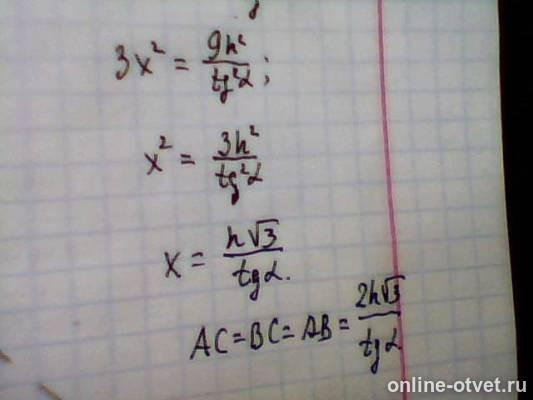 3x² = 9h²/tg²α;
x² = 3h²/tg²α
x = h√3/tgα.
AC = BC = AB = 2h√3/tgα
online-otvet.ru